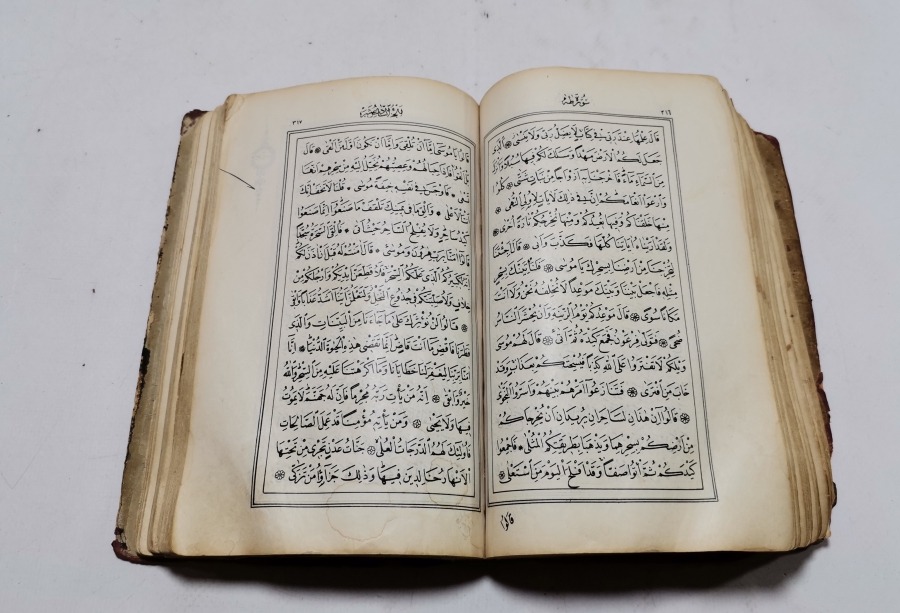 سُورَةُ طٰهٰ
٣١٦
قَالَ عِلْمُهَا عِنْدَ رَبّ۪ي ف۪ي كِتَابٍ لَا يَضِلُّ رَبّ۪ي وَلَا يَنْسٰى اَلَّذ۪ي
جَعَلَ لَكُمُ الْاَرْضَ مَهْدًا وَسَلَكَ لَكُمْ ف۪يهَا سُبُلًا وَاَنْزَلَ
مِنَ السَّمَٓاءِ مَٓاءً فَاَخْرَجْنَا بِه۪ٓ اَزْوَاجًا مِنْ نَبَاتٍ شَتّٰى كُلُوا
وَارْعَوْا اَنْعَامَكُمْ اِنَّ ف۪ي ذٰلِكَ لَاٰيَاتٍ لِاُو۬لِي النُّهٰى
مِنْهَا خَلَقْنَاكُمْ وَف۪يهَا نُع۪يدُكُمْ وَمِنْهَا نُخْرِجُكُمْ تَارَةً اُخْرٰى
وَلَقَدْ اَرَيْنَاهُ اٰيَاتِنَا كُلَّهَا فَكَذَّبَ وَاَبٰى قَالَ اَجِئْتَنَا
لِتُخْرِجَنَا مِنْ اَرْضِنَا بِسِحْرِكَ يَا مُوسٰى فَلَنَأْتِيَنَّكَ بِسِحْرٍ
مِثْلِه۪ فَاجْعَلْ بَيْنَنَا وَبَيْنَكَ مَوْعِدًا لَا نُخْلِفُهُ نَحْنُ وَلَٓا اَنْتَ
مَكَانًا سُوًى قَالَ مَوْعِدُكُمْ يَوْمُ الزّ۪ينَةِ وَاَنْ يُحْشَرَ النَّاسُ
ضُحًى فَتَوَلّٰى فِرْعَوْنُ فَجَمَعَ كَيْدَهُ ثُمَّ اَتٰى قَالَ لَهُمْ مُوسٰى
وَيْلَكُمْ لَا تَفْتَرُوا عَلَى اللّٰهِ كَذِبًا فَيُسْحِتَكُمْ بِعَذَابٍ وَقَدْ
خَابَ مَنِ افْتَرٰى فَتَنَازَعُٓوا اَمْرَهُمْ بَيْنَهُمْ وَاَسَرُّوا النَّجْوٰى
قَالُٓوا اِنْ هٰذَانِ لَسَاحِرَانِ يُر۪يدَانِ اَنْ يُخْرِجَاكُمْ
مِنْ اَرْضِكُمْ بِسِحْرِهِمَا وَيَذْهَبَا بِطَر۪يقَتِكُمُ الْمُثْلٰى فَاَجْمِعُوا
كَيْدَكُمْ ثُمَّ ائْتُوا صَفًّا وَقَدْ اَفْلَحَ الْيَوْمَ مَنِ اسْتَعْلٰى
قَالُوا
٣١٧
قَالُوا يَا مُوسٰٓى اِمَّٓا اَنْ تُلْقِيَ وَاِمَّٓا اَنْ نَكُونَ اَوَّلَ مَنْ اَلْقٰى قَالَ
بَلْ اَلْقُوا فَاِذَا حِبَالُهُمْ وَعِصِيُّهُمْ يُخَيَّلُ اِلَيْهِ مِنْ سِحْرِهِمْ اَنَّهَا
تَسْعٰى فَاَوْجَسَ ف۪ي نَفْسِه۪ خ۪يفَةً مُوسٰى قُلْنَا لَا تَخَفْ اِنَّكَ
اَنْتَ الْاَعْلٰى وَاَلْقِ مَا ف۪ي يَم۪ينِكَ تَلْقَفْ مَا صَنَعُوا اِنَّمَا صَنَعُوا
كَيْدُ سَاحِرٍ وَلَا يُفْلِحُ السَّاحِرُ حَيْثُ اَتٰى فَاُلْقِيَ السَّحَرَةُ سُجَّدًا
قَالُٓوا اٰمَنَّا بِرَبِّ هٰرُونَ وَمُوسٰى قَالَ اٰمَنْتُمْ لَهُ قَبْلَ اَنْ اٰذَنَ لَكُمْ
اِنَّهُ لَكَب۪يرُكُمُ الَّذ۪ي عَلَّمَكُمُ السِّحْرَ فَلَاُقَطِّعَنَّ اَيْدِيَكُمْ وَاَرْجُلَكُمْ مِنْ
خِلَافٍ وَلَاُصَلِّبَنَّكُمْ ف۪ي جُذُوعِ النَّخْلِ وَلَتَعْلَمُنَّ اَيُّنَٓا اَشَدُّ عَذَابًا وَاَبْقٰى
قَالُوا لَنْ نُؤْثِرَكَ عَلٰى مَا جَٓاءَنَا مِنَ الْبَيِّنَاتِ وَالَّذ۪ي
فَطَرَنَا فَاقْضِ مَٓا اَنْتَ قَاضٍ اِنَّمَا تَقْض۪ي هٰذِهِ الْحَيٰوةَ الدُّنْيَا اِنَّٓا
اٰمَنَّا بِرَبِّنَا لِيَغْفِرَ لَنَا خَطَايَانَا وَمَٓا اَكْرَهْتَنَا عَلَيْهِ مِنَ السِّحْرِ وَاللّٰهُ
خَيْرٌ وَاَبْقٰى اِنَّهُ مَنْ يَأْتِ رَبَّهُ مُجْرِمًا فَاِنَّ لَهُ جَهَنَّمَ لَا يَمُوتُ
ف۪يهَا وَلَا يَحْيٰى وَمَنْ يَأْتِه۪ مُؤْمِنًا قَدْ عَمِلَ الصَّالِحَاتِ
فَاُو۬لٰٓئِكَ لَهُمُ الدَّرَجَاتُ الْعُلٰى جَنَّاتُ عَدْنٍ تَجْر۪ي مِنْ تَحْتِهَا
الْاَنْهَارُ خَالِد۪ينَ ف۪يهَا وَذٰلِكَ جَزَٓاؤُ مَنْ تَزَكّٰى